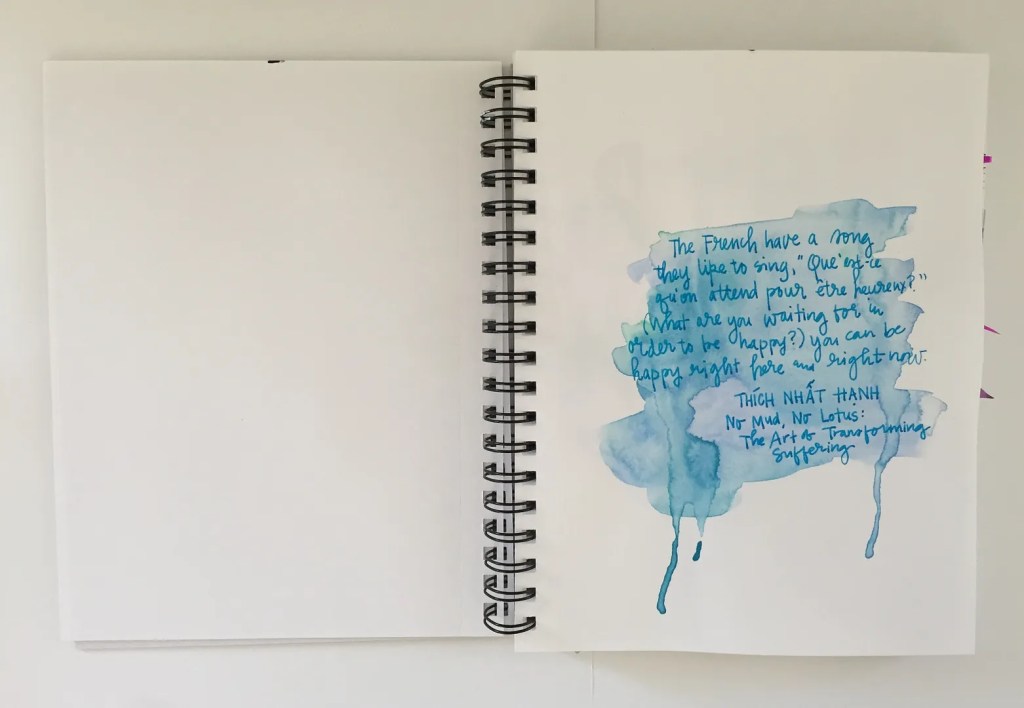 The French have a song
they like to sing, "Que'est-ce
qu'on attend pour être heureux?"
(What are you waiting for in
order to be happy?) you can be
happy right here and right now.
THÍCH NHẤT HẠNH
No Mud, No Lotus:
The Art of Transforming
Suffering